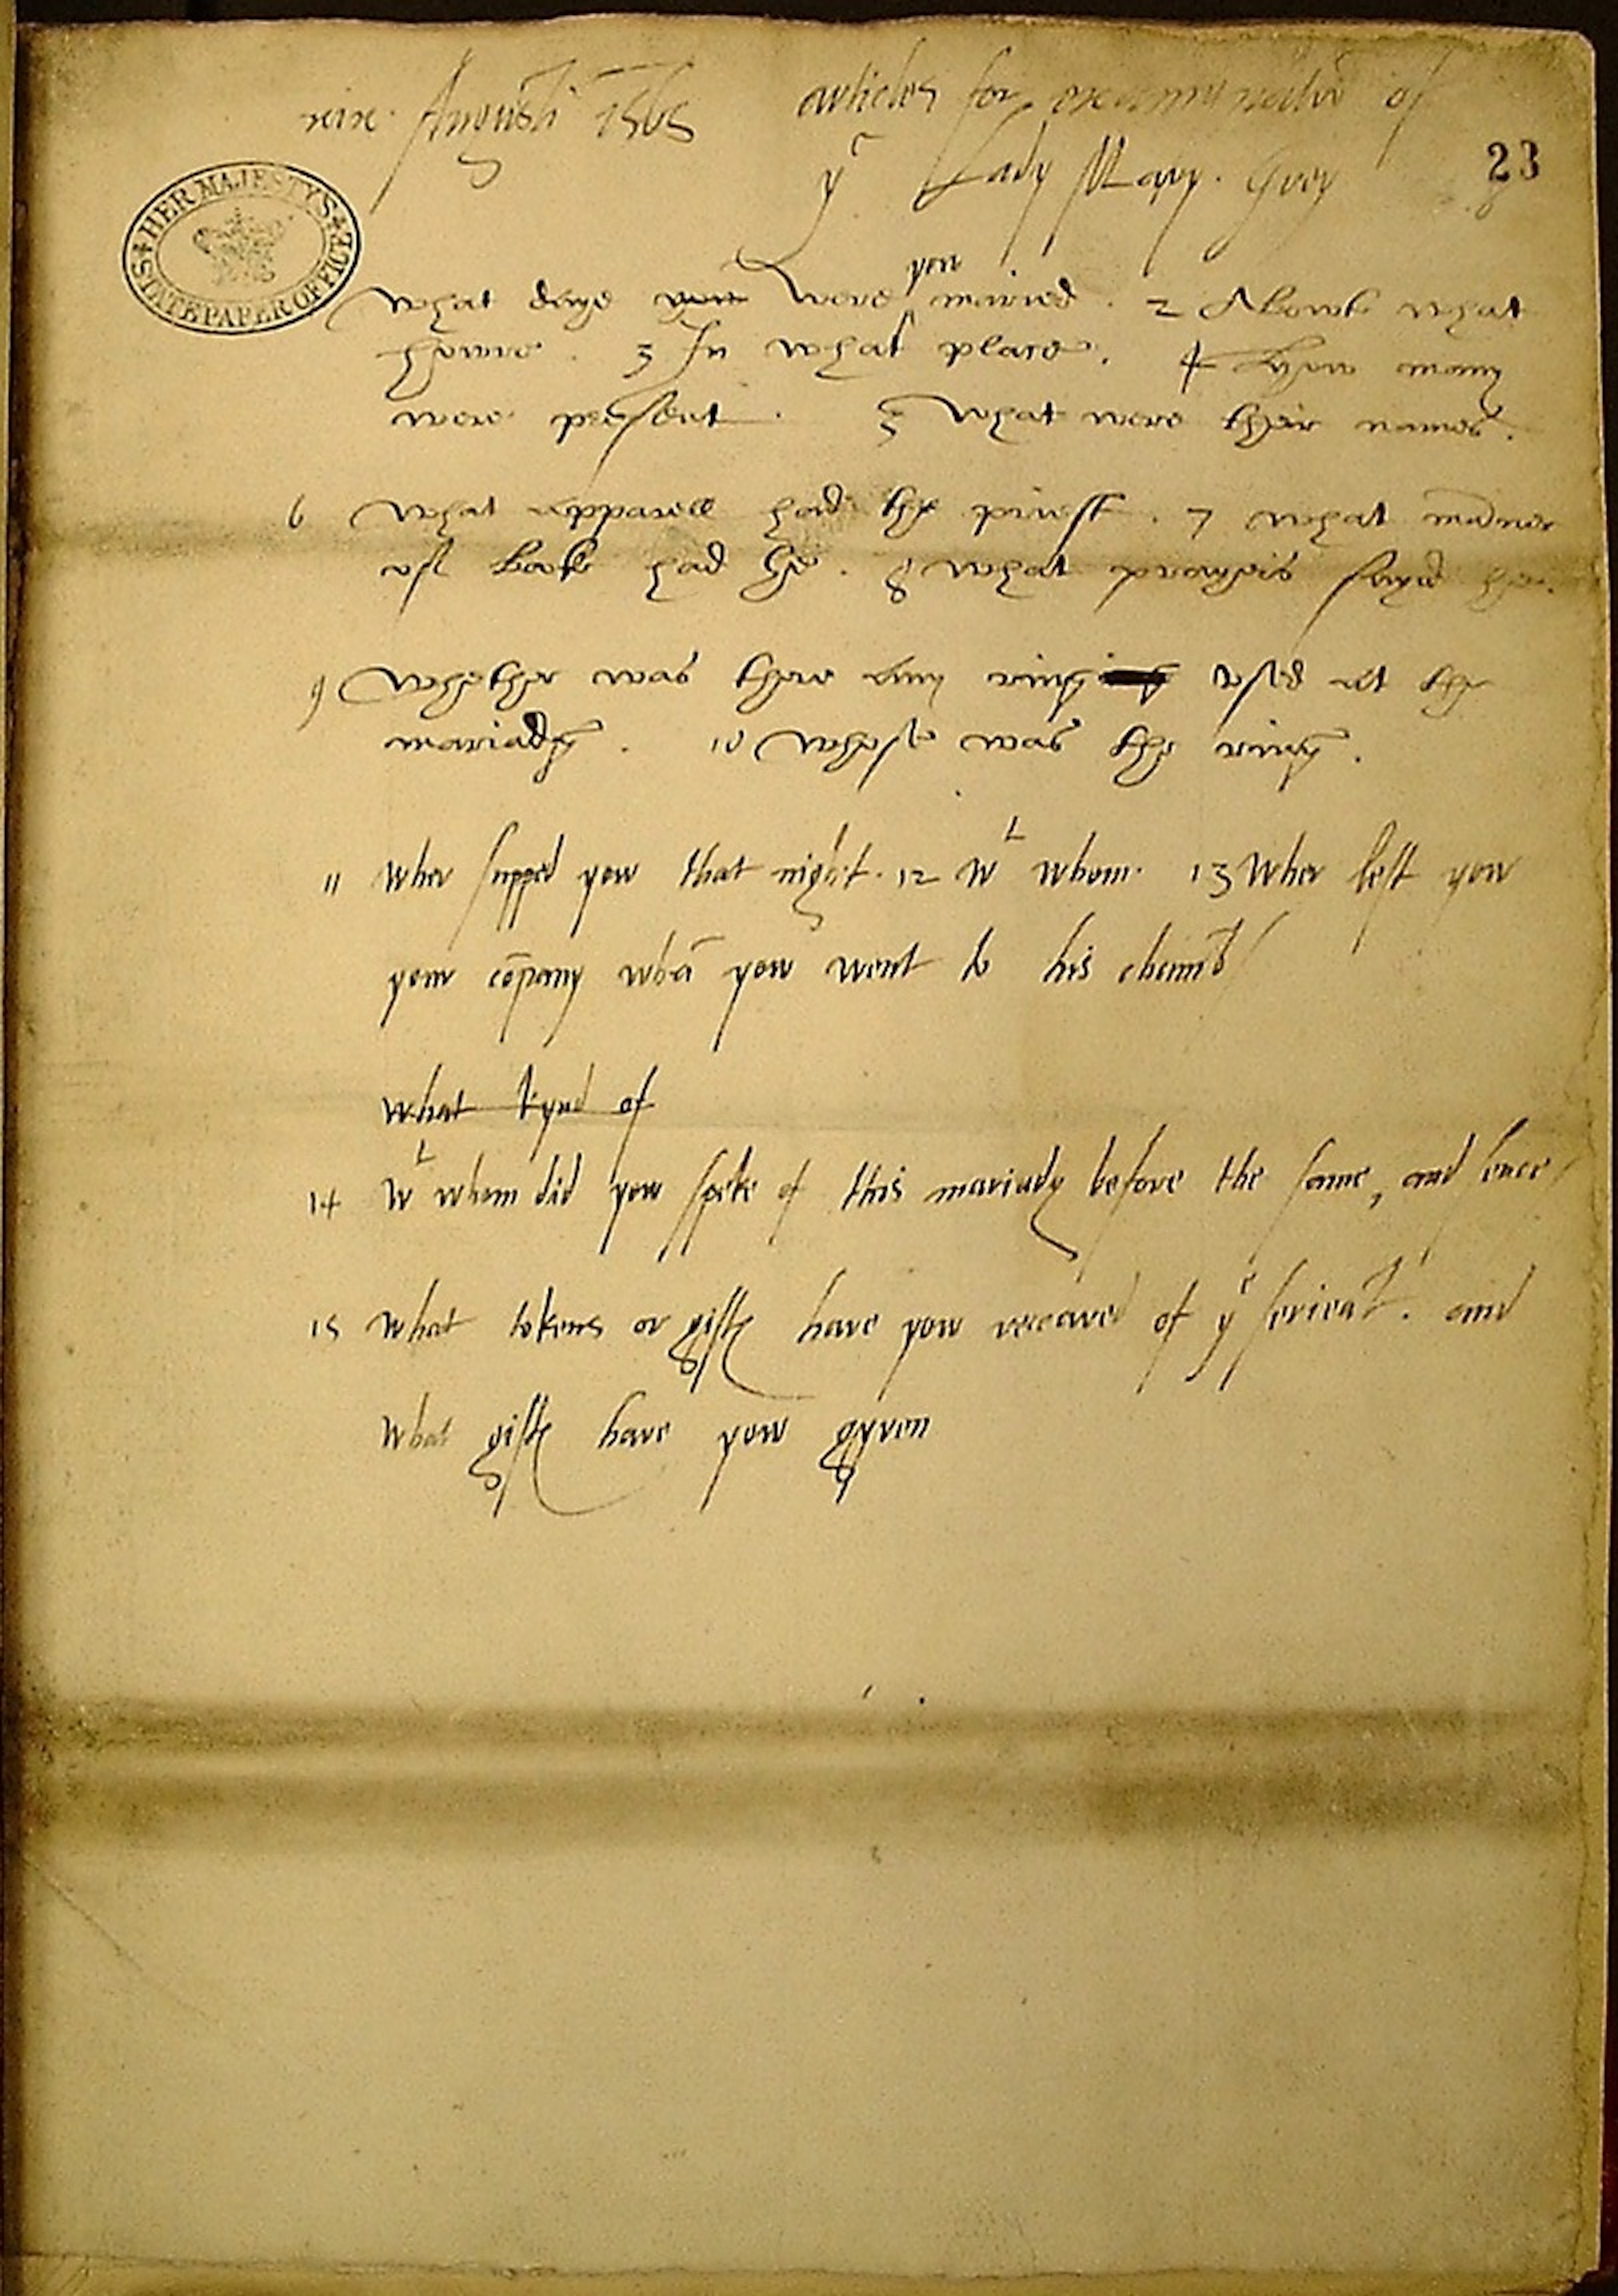 xix Augusti 1565 articles for examynatiō of
yᵉ Lady Mary. Grey 23
HER MAJESTYS STATE PAPER OFFICE
What daye you were you maried. 2 Abowt what
howre. 3 In what place. 4 How many
were present. 5 What were their names.
6 What apparell had the priest. 7 what maner
of booke had he. 8 What prayers sayd he.
9 Whether was there any ring used at the
mariadg. 10 Whose was the ring.
11 Wher supped yow that night. 12 Wᵗ whom. 13 Wher left yow
your cōpany whā yow went to his chamb
what kynd of
14 Wᵗ whom did yow speke of this mariadg before the same, and sence
15 What tokens or gifts have yow receaved of yᵉ serieāt. and
what gifts have yow gyven